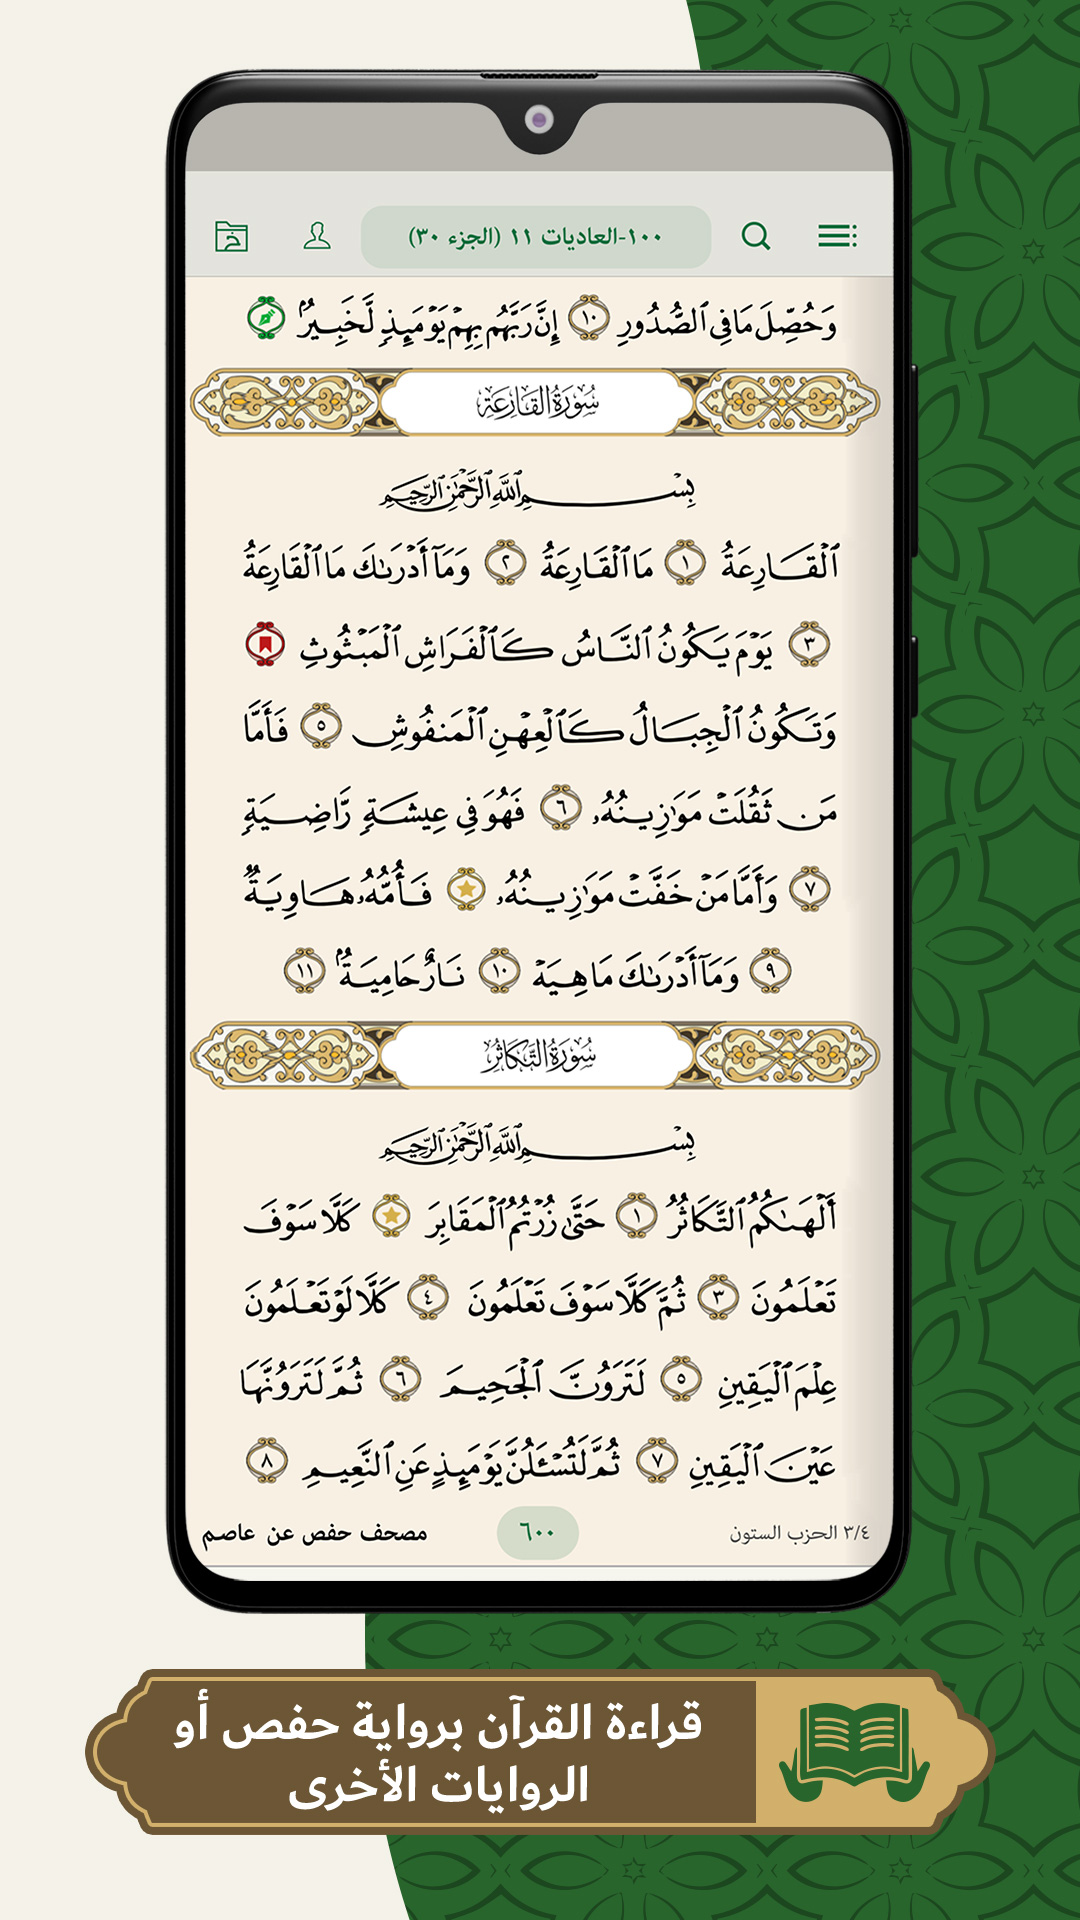 ١٠٠-العاديات ١١ (الجزء ٣٠)
وَحُصِّلَ مَا فِى ٱلصُّدُورِ ١٠ إِنَّ رَبَّهُم بِهِمْ يَوْمَئِذٍ لَّخَبِيرٌۢ
سُورَةُ القَارِعَةِ
بِسْمِ ٱللَّهِ ٱلرَّحْمَٰنِ ٱلرَّحِيمِ
ٱلْقَارِعَةُ ١ مَا ٱلْقَارِعَةُ ٢ وَمَآ أَدْرَىٰكَ مَا ٱلْقَارِعَةُ
٣ يَوْمَ يَكُونُ ٱلنَّاسُ كَٱلْفَرَاشِ ٱلْمَبْثُوثِ
وَتَكُونُ ٱلْجِبَالُ كَٱلْعِهْنِ ٱلْمَنفُوشِ ٥ فَأَمَّا
مَن ثَقُلَتْ مَوَٰزِينُهُۥ ٦ فَهُوَ فِى عِيشَةٍ رَّاضِيَةٍ
٧ وَأَمَّا مَنْ خَفَّتْ مَوَٰزِينُهُۥ فَأُمُّهُۥ هَاوِيَةٌ
٩ وَمَآ أَدْرَىٰكَ مَا هِيَهْ ١٠ نَارٌ حَامِيَةٌۢ ١١
سُورَةُ التَّكَاثُرِ
بِسْمِ ٱللَّهِ ٱلرَّحْمَٰنِ ٱلرَّحِيمِ
أَلْهَىٰكُمُ ٱلتَّكَاثُرُ ١ حَتَّىٰ زُرْتُمُ ٱلْمَقَابِرَ كَلَّا سَوْفَ
تَعْلَمُونَ ٣ ثُمَّ كَلَّا سَوْفَ تَعْلَمُونَ ٤ كَلَّا لَوْ تَعْلَمُونَ
عِلْمَ ٱلْيَقِينِ ٥ لَتَرَوُنَّ ٱلْجَحِيمَ ٦ ثُمَّ لَتَرَوُنَّهَا
عَيْنَ ٱلْيَقِينِ ٧ ثُمَّ لَتُسْـَٔلُنَّ يَوْمَئِذٍ عَنِ ٱلنَّعِيمِ ٨
٣/٤ الحزب الستون
٦٠٠
مصحف حفص عن عاصم
قراءة القرآن برواية حفص أو
الروايات الأخرى